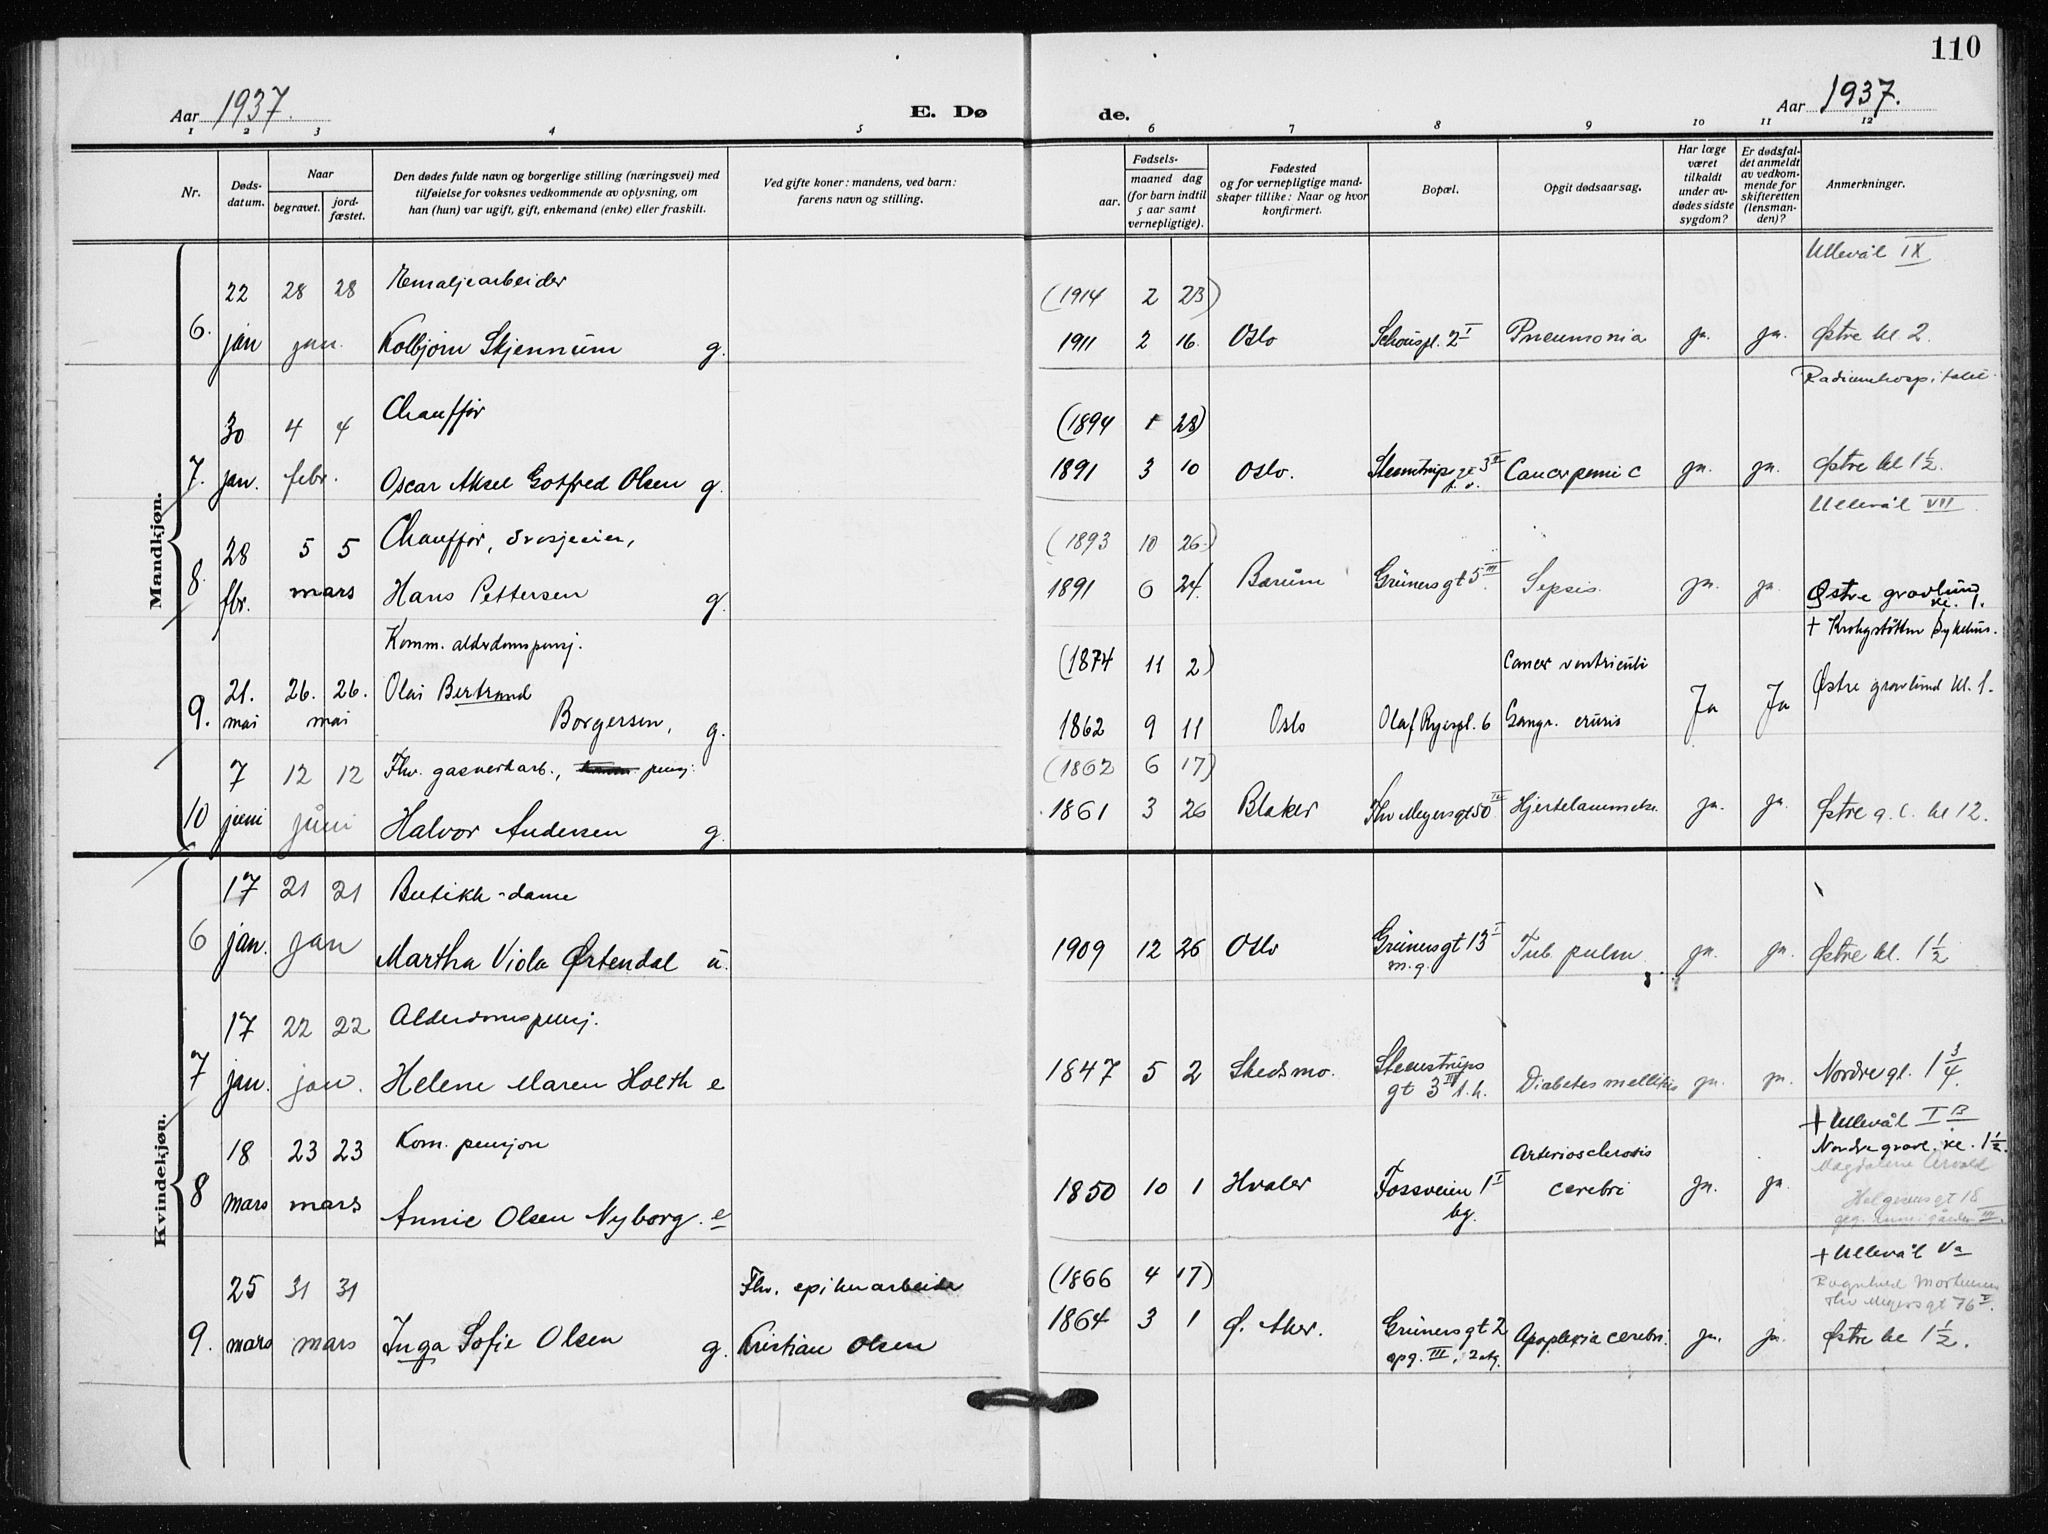 110
Aar 1937. E. Dø de. Aar 1937.
1 2 3 4 5 6 7 8 9 10 11 12
Nr. Døds-datum. Naar begravet. jord-fæstet. Den dødes fulde navn og borgerlige stilling (næringsvei) med tilføielse for voksnes vedkommende av oplysning, om han (hun) var ugift, gift, enkemand (enke) eller fraskilt. Ved gifte koner: mandens, ved barn: farens navn og stilling. Fødsels- aar. maaned dag (for barn indtil 5 aar samt vernepligtige). Fødested og for vernepligtige mand-skaper tillike: Naar og hvor konfirmert. Bopæl. Opgit dødsaarsag. Har læge været tilkaldt under av-dødes sidste sygdom? Er dødsfal-det anmeldt av vedkom-mende for skifteretten (lensman-den)? Anmerkninger.
Mandkjøn.
Ullevål IX
22 28 28 Emaljearbeider (1914 2 23)
6. jan jan. Kolbjørn Skjennum g. 1911 2 16. Oslo Schouspl. 2 I Pneumonia ja. ja. Østre kl. 2.
Radiumhospitalet
30 4 4 Chauffør (1894 1 28)
7. jan. febr. Oscar Aksel Gotfred Olsen g. 1891 3 10 Oslo. Steenstrups gt 3 Cancer penis ja. ja. Østre kl 1½.
Ullevål VII
28 5 5 Chauffør, drosjeeier, (1893 10 26.)
8. fbr. mars Hans Pettersen g. 1891 6 24. Bærum Grünersgt 5 III Sepsis. ja. ja. Østre gravlund kl. 1.
Komm. alderdomspensj. + Krohgstøtten Sykehus.
(1874 11 2) Cancer ventriculi
9. 21. mai 26. 26. mai Olai Bertrand Borgersen, g. 1862 9 11 Oslo Olaf Ryespl. 6 Gangr. cruris Ja Ja Østre gravlund kl. 1.
7 12 12 Fhv. gasverkarb., pensj. (1862 6 17)
10 juni juni Halvor Andersen g. 1861 3 26 Blaker Thv Meyersgt 50 IV Hjertelammelse. ja. ja. Østre g. l. kl 12.
Kvindekjøn.
17 21 21 Butikk-dame
6 jan. jan Martha Viola Ørtendal u. 1909 12 26 Oslo Grünersgt 13 I m.g. Tub. pulm. ja. ja. Østre kl. 1½
17 22 22 Alderdomspensj.
7 jan. jan. Helene Maren Holth e 1847 5 2 Skedsmo. Steenstrups gt 3 III t.h. Diabetes mellitis ja. ja. Nordre gl. 1¾.
+ Ullevål I B
18 23 23 Kom. pensjon Arteriosclerosis Nordre gravl. kl. 1½.
8 mars mars Annie Olsen Nyborg. e 1850 10 1 Hvaler Fossveien 1 I bg. cerebri ja. ja. Magdalene Arvold
Helgesensgt 18
+ Ullevål Va
25 31 31 Fhv. spikerarbeider (1866 4 17) Ragnhild Mortensen
Thv Meyersgt 76 V.
9. mars mars Inga Sofie Olsen g. Kristian Olsen 1864 3 1 Ø. Aker. Grünersgt 2 opg. III, 2 etg. Apoplexia cerebri. ja. ja. Østre kl 1½.